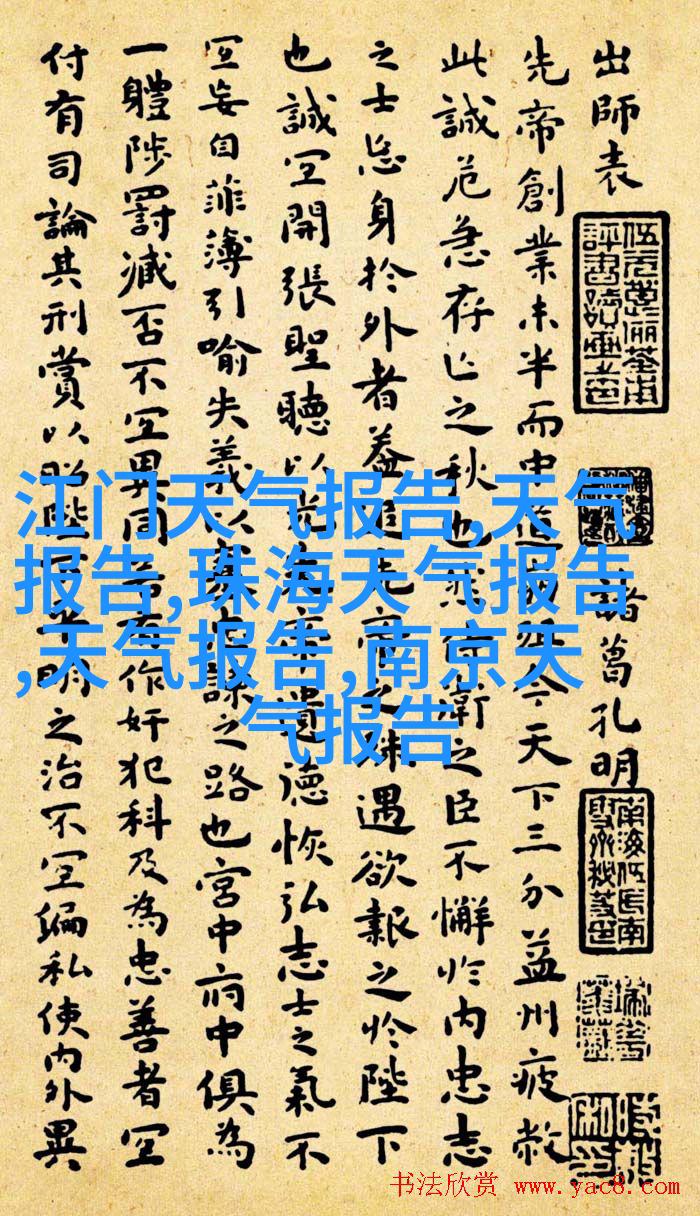 出師表
諸葛孔明
先帝創業未半而中道崩殂今天下三分益州疲敝
此誠危急存亡之秋也然侍衛之臣不懈於內忠志
之士忘身於外者蓋追先帝之殊遇欲報之於陛下
也誠宜開張聖聽以光先帝遺德恢弘志士之氣不
宜妄自菲薄引喻失義以塞忠諫之路也宮中府中俱為
一體陟罰臧否不宜異同若有作奸犯科及為忠善者宜
付有司論其刑賞以昭陛下平明之治不宜偏私使內外異
江门天气报告,天气
报告,珠海天气报告
,天气报告,南京天
气报告
书法欣赏 www.yac8.com